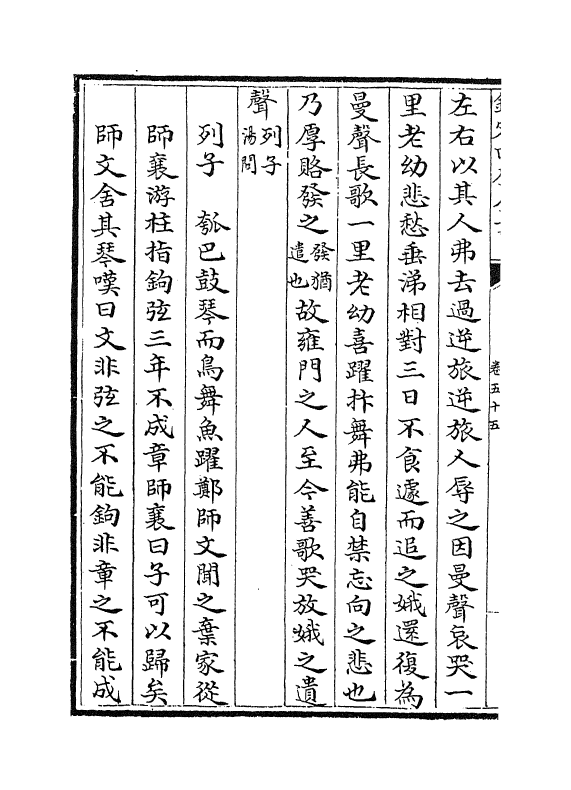 卷五十五
左右以其人弗去過逆旅逆旅人辱之因曼聲哀哭一
里老幼悲愁垂涕相對三日不食遽而追之娥還復為
曼聲長歌一里老幼喜躍抃舞弗能自禁忘向之悲也
乃厚賂發之發猶遣也故雍門之人至今善歌哭放娥之遺
聲列子湯問
列子　瓠巴鼓琴而鳥舞魚躍鄭師文聞之棄家從
師襄游柱指鉤弦三年不成章師襄曰子可以歸矣
師文舍其琴嘆曰文非弦之不能鉤非章之不能成